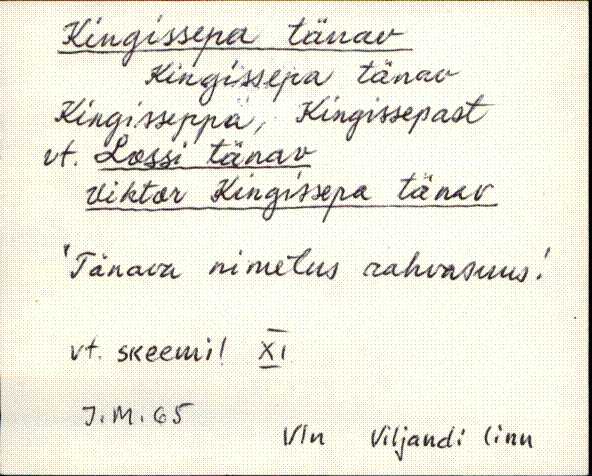 Kingissepa tänav
Kingissepa tänav
Kingisseppä, Kingissepast
vt. Lossi tänav
Viktor Kingissepa tänav
'Tänava nimetus rahvasuus!
vt. skeemi! XI
J.M.65
Vln Viljandi linn